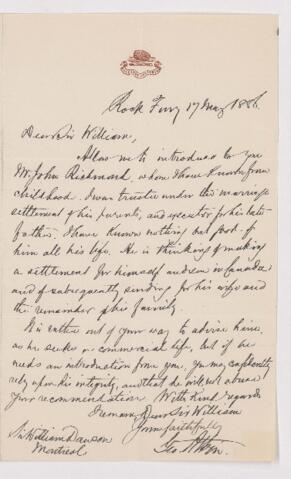 Rock Ferry 17 May 1886.
Dear Sir William,
Allow me to introduce to you
Mr. John Richmond, whom I have known from
childhood. I was trustee under the marriage
settlement of his parents, and executor for his late
father. I have known nothing but good of
him all his life. He is thinking of making
a settlement for himself and son in Canada,
and of subsequently sending for his wife and
the remainder of his family.
It is rather out of your way to advise him,
as he seeks a commercial life, but if he
needs an introduction from you, you may confidently
rely upon his integrity, and that he will not abuse
your recommendation. With kind regards
I remain, Dear Sir William
Yours faithfully
Geo
Sir William Dawson
Montreal